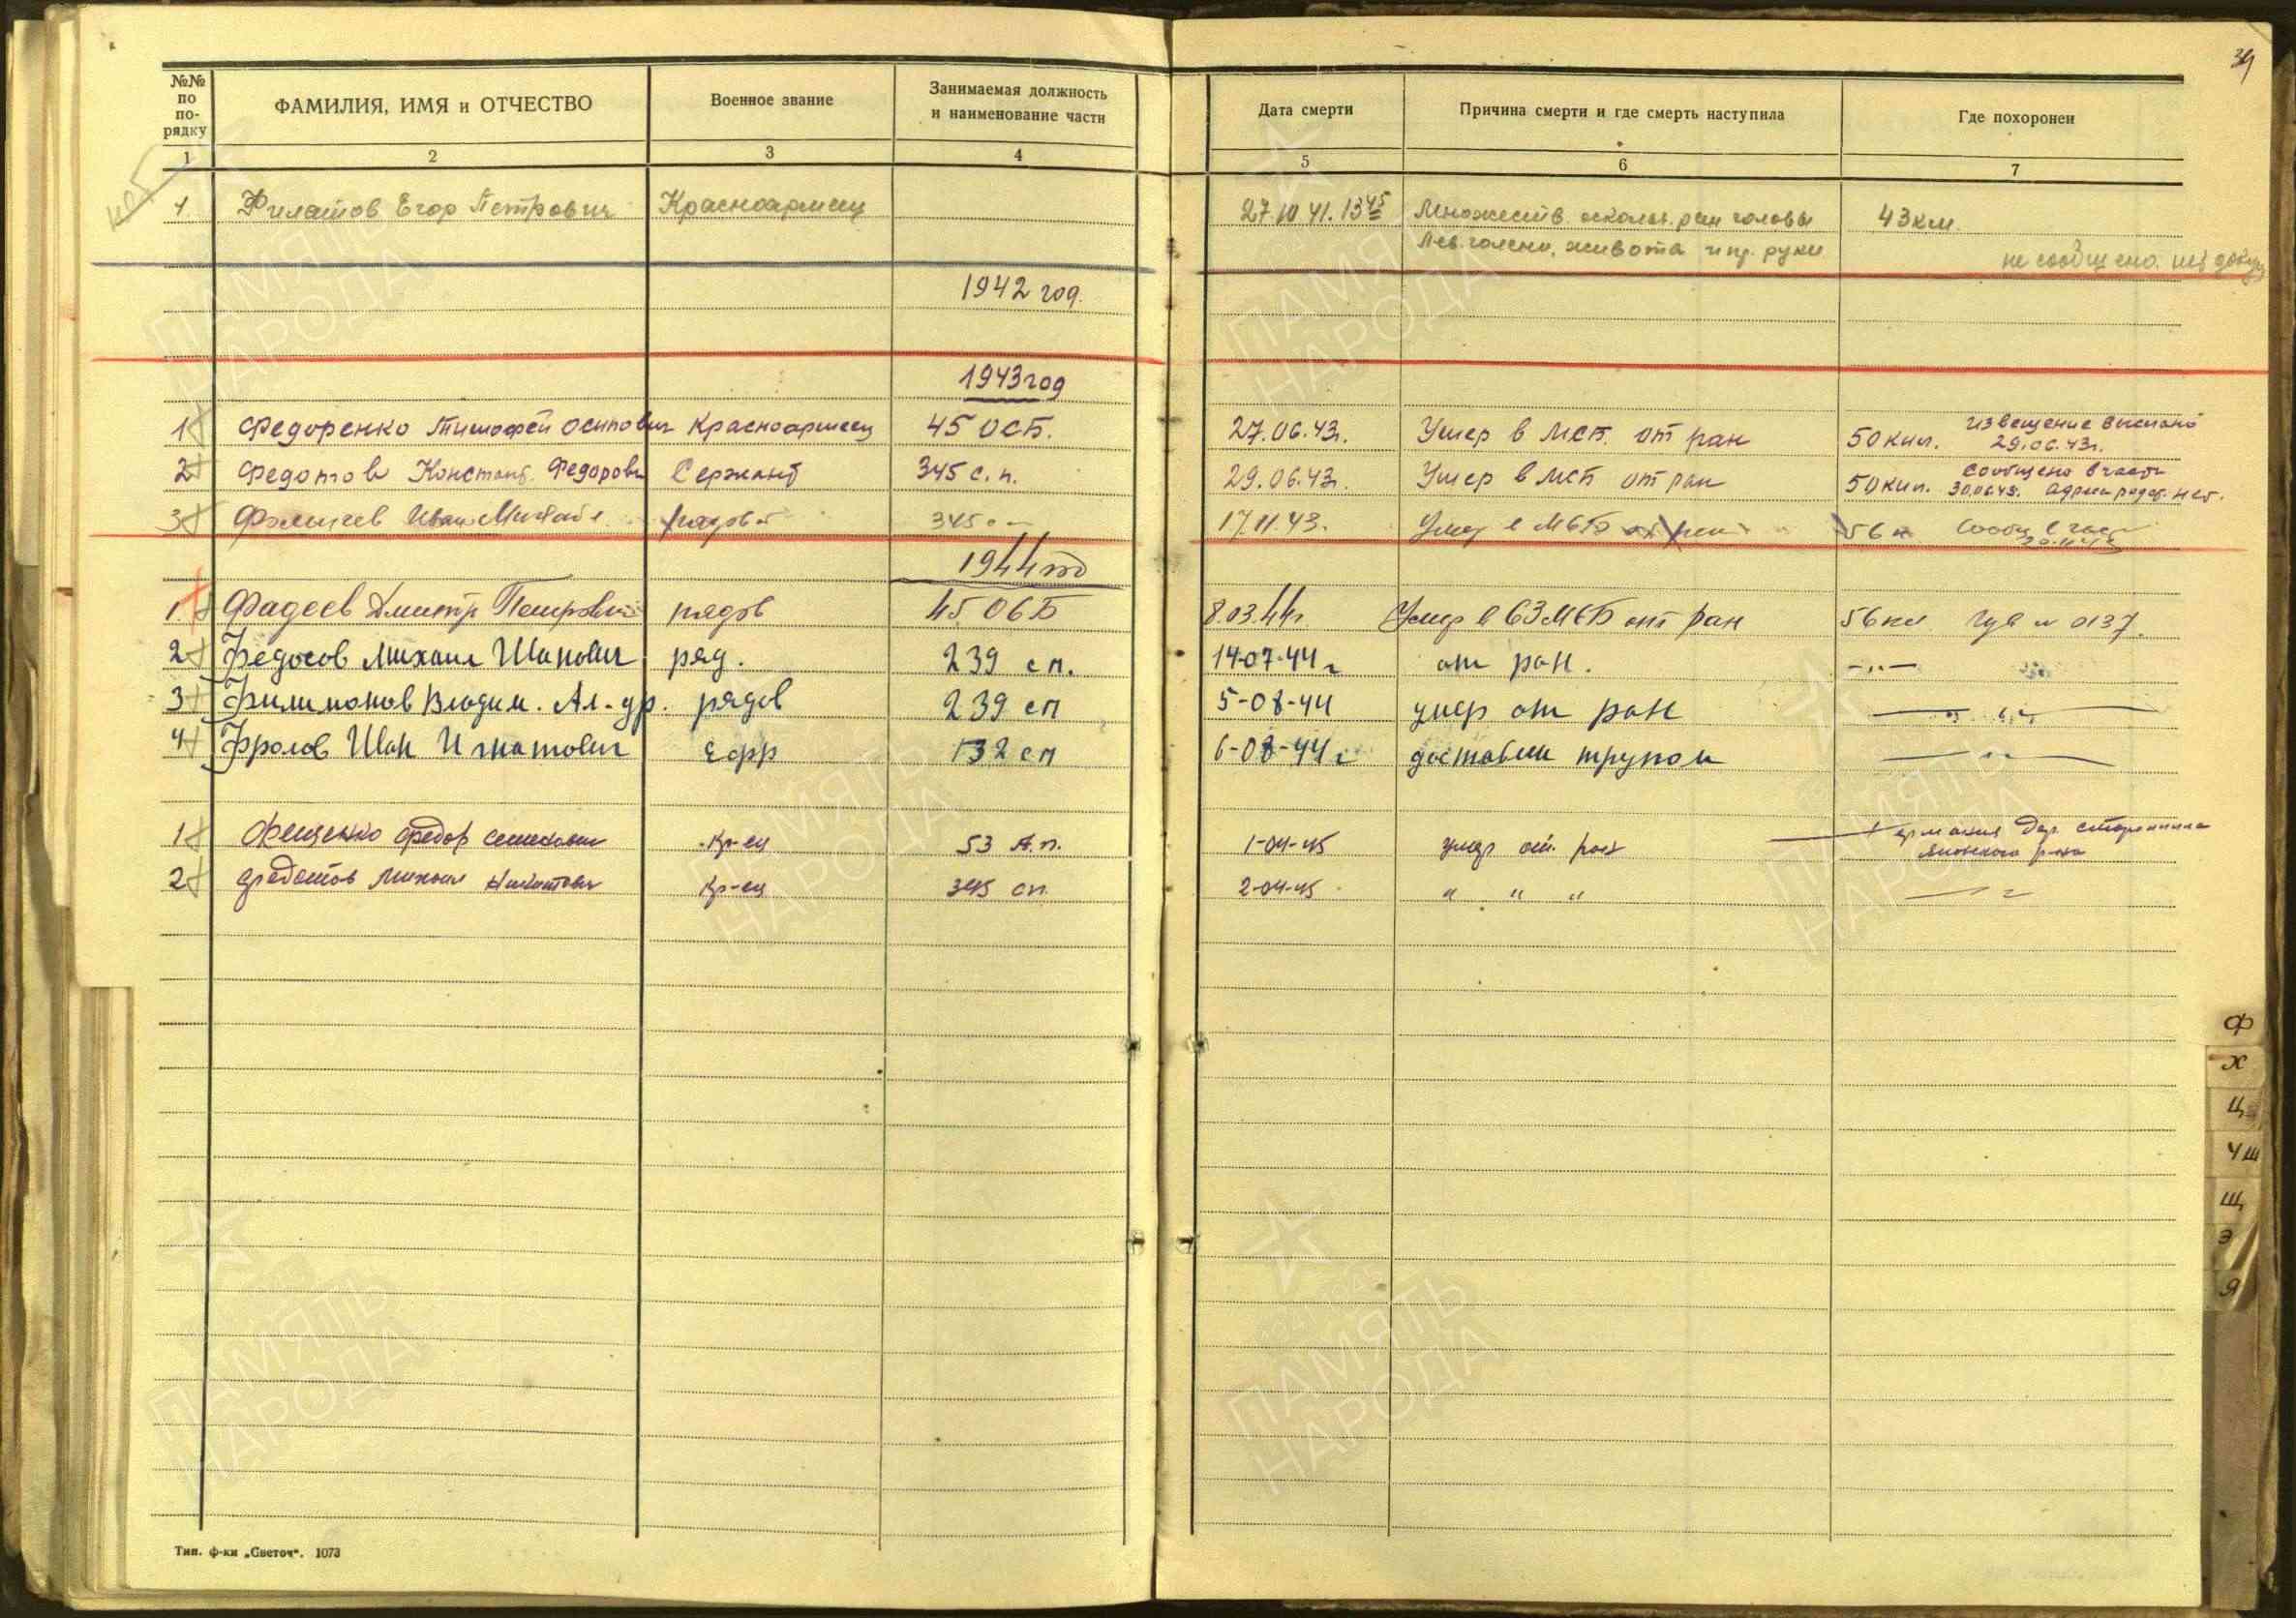 34
№№ по по-рядку
ФАМИЛИЯ, ИМЯ и ОТЧЕСТВО
Военное звание
Занимаемая должность и наименование части
Дата смерти
Причина смерти и где смерть наступила
Где похоронен
1 2 3 4 5 6 7
нет
1 Филатов Егор Петрович Красноармеец 27.10.41. 13 45 Множеств. оскольч. ран головы 43 км.
лев. голени, живота и пр. руки
не сообщено. нет
1942 год.
1943 год
1 Федоренко Тимофей Осипович Красноармеец 45 ОСБ. 27.06.43г. Умер в МСБ. от ран 50 км. извещение выслано
29.06.43г.
2 Федотов Констант. Федоров Сержант 345 с.п. 29.06.43г. Умер в МСБ от ран 50 км. Сообщено в часть
30.06.43. Адреса родст. нет.
3 Иван Михайл рядовой 345 17.11.43. Умер в МСБ 56 Сообщ в
1944 год
1. Фадеев Дмитр Петрович рядов 45 ОСБ 8.03.44г. Умер в 63 МСБ от ран 56 км № 0137.
2 Федосов Михаил Иванович ряд. 239 сп. 14-07-44г от ран. -"-
3 Филимонов Владим. Ал-др. рядов 239 сп 5-08-44 умер от ран — " —
4 Фролов Иван Игнатович Ефр 132 сп 6-08-44г доставлен трупом — " —
1 Фещенко Федор Семенович Кр-ец 53 А.п. 1-04-45 умер от ран Германия Дер.
2 Федотов Михаил Кр-ец 345 сп. 2-04-45 " " " — " —
Ф
Х
Ц
Ч Ш
Щ
Э
Я
Тип. ф-ки „Светоч". 1073
ПАМЯТЬ
НАРОДА